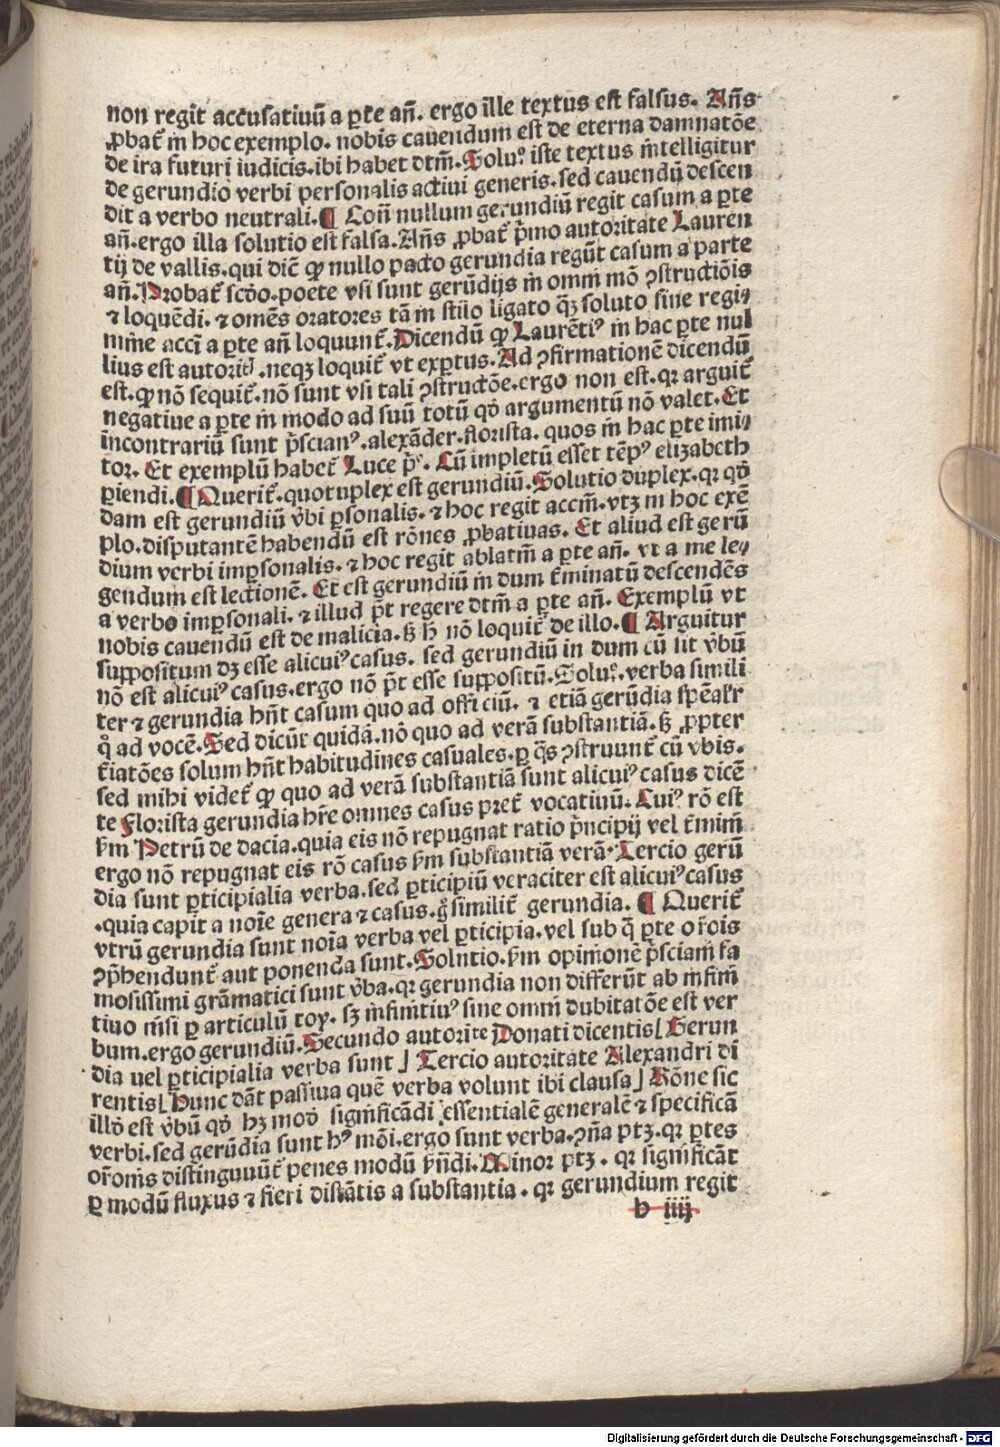 non regit accusatiuū a ꝑte añ. ergo ille textus est falsus. Añs
ꝓbat᷑ in hoc exemplo. nobis cauendum est de eterna damnatōe
de ira futuri iudicis. ibi habet dtm̄. Soluᵒ iste textus intelligitur
de gerundio verbi personalis actiui generis. sed cauendū descen
dit a verbo neutrali. ¶ Coñ nullum gerundiū regit casum a ꝑte
añ. ergo illa solutio est falsa. Añs ꝓbat᷑ pͥmo autoritate Lauren
tij de vallis. qui dic̄ ꝙ nullo pacto gerundia regūt casum a parte
añ. Probat᷑ scd̄o. poete vsi sunt gerūdijs in omni mō ꝯstructiōis
⁊ loquēdi. ⁊ omēs oratores tā in stilo ligato qꝫ soluto sine regi⸗
mine acci a ꝑte añ loquunt᷑. Dicendū ꝙ Laurētiꝰ in hac ꝑte nul
lius est autorit̄. neqꝫ loquit᷑ vt exꝑtus. Ad ꝯfirmationē dicendū
est. ꝙ nō sequit᷑. nō sunt vsi tali ꝯstructōe. ergo non est. qꝛ arguit᷑
negatiue a ꝑte in modo ad suū totū qd̄ argumentū nō valet. Et
incontrariū sunt p̄scianꝰ. alexāder. florista. quos in hac ꝑte imi⸗
tor. Et exemplū habet᷑ Luce pͦ. Cū impletū esset tēpꝰ elizabeth
ꝑiendi. ¶ Querit᷑. quotuplex est gerundiū. Solutio duplex. qꝛ qd̄
dam est gerundiū v̄bi ꝑsonalis. ⁊ hoc regit accm̄. vtꝫ in hoc exē
plo. disputantē habendū est rōnes ꝓbatiuas. Et aliud est gerū
dium verbi imꝑsonalis. ⁊ hoc regit ablatm̄ a ꝑte añ. vt a me le⸗
gendum est lectionē. Et est gerundiū in dum t᷑minatū descendēs
a verbo imꝑsonali. ⁊ illud p̄t regere dtm̄ a ꝑte añ. Exemplū vt
nobis cauendū est de malicia. sꝫ h̄ nō loquit᷑ de illo. ¶ Arguitur
suppositum dꝫ esse alicuiꝰ casus. sed gerundiū in dum cū sit v̄bū
nō est alicuiꝰ casus. ergo nō p̄t esse suppositū. Soluᵒ. verba simili
ter ⁊ gerundia hñt casum quo ad officiū. ⁊ etiā gerūdia sp̄ēalr̄
q̊ ad vocē. Sed dicūt quidā. nō quo ad verā substantiā. sꝫ ꝓpter
t᷑iatōes solum hñt habitudines casuales. ꝑ q̄s ꝯstruunt᷑ cū v̄bis.
sed mihi videt᷑ ꝙ quo ad verā substantiā sunt alicuiꝰ casus dicē
te Florista gerundia hr̄e omnes casus pret᷑ vocatiuū. Cuiꝰ rō est
ẜm Petrū de dacia. quia eis nō repugnat ratio p̄ncipij vel t᷑mini
ergo nō repugnat eis rō casus ẜm substantiā verā. Tercio gerū
dia sunt ꝑticipialia verba. sed ꝑticipiū veraciter est alicuiꝰ casus
. quia capit a noīe genera ⁊ casus. g̊ similit᷑ gerundia. ¶ Querit᷑
vtrū gerundia sunt noīa verba vel ꝑticipia. vel sub q̄ ꝑte or̄ois
ꝯp̄hendunt᷑ aut ponenda sunt. Solutio. ẜm opinionē p̄sciani fa
mosissimi grāmatici sunt v̄ba. qꝛ gerundia non differūt ab infini
tiuo nisi ꝑ articulū toy. sꝫ infinitiuꝰ sine omni dubitatōe est ver
bum. ergo gerundiū. Secundo autoritͤ Donati dicentis⌊ Gerun
dia uel ꝑticipialia verba sunt ⌋ Tercio autoritate Alexandri di
rentis⌊ Hunc dāt passiua quē verba volunt ibi clausa⌋ Rōne sic
illd̄ est v̄bū qd̄ hꝫ modū significādi essentialē generalē ⁊ specificā
verbi. sed gerūdia sunt hꝰ mōi. ergo sunt verba. ꝯña ptꝫ. qꝛ ꝑtes
or̄onis distinguūt᷑ penes modū ẜñdi. Minor ptꝫ. qꝛ significāt
ꝑ modū fluxus ⁊ fieri distātis a substantia. qꝛ gerundium regit
b iiij
Digitalisierung gefördert durch die Deutsche Forschungsgemeinschaft - DFG